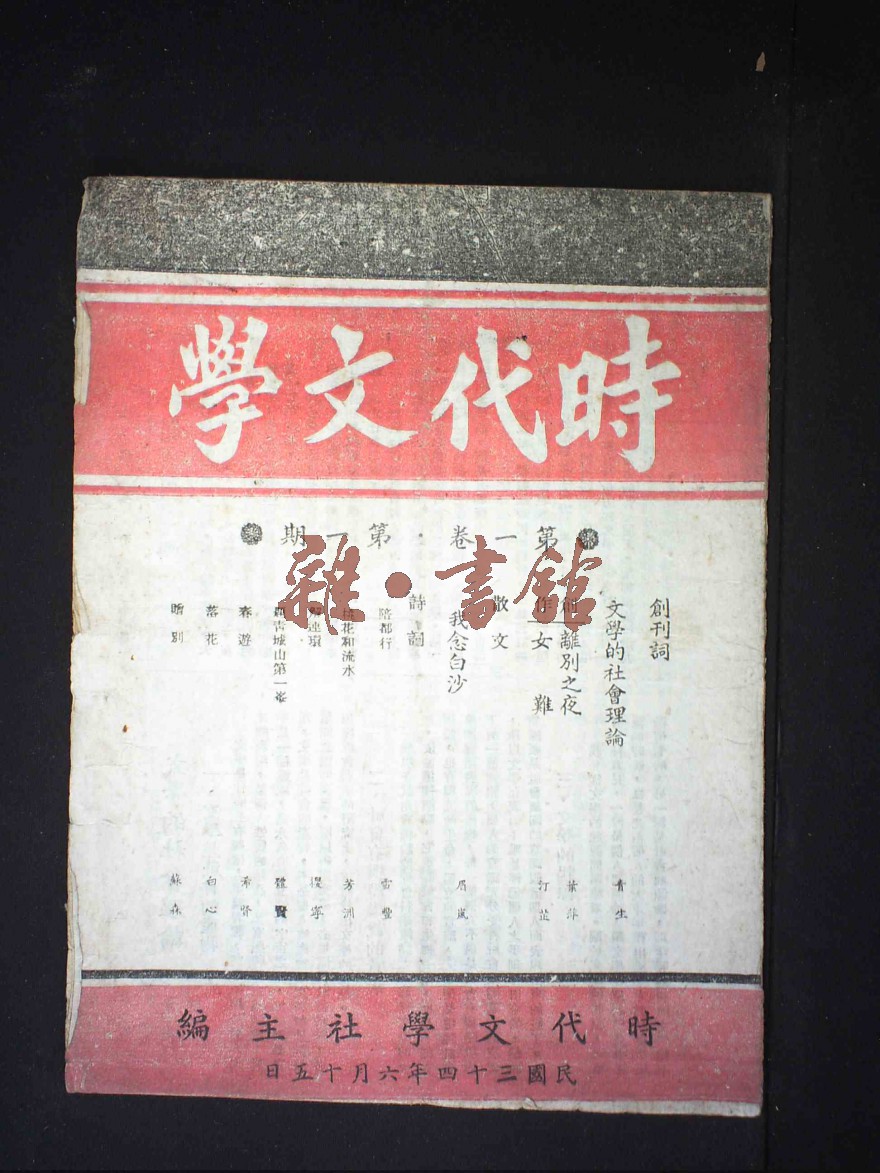 時代文學
第一卷 第一期
雜·書館
創刊詞
文學的社會理論 青生
創作
離別之夜 葉萍
女難 汀芷
散文
我念白沙 眉嵐
詩詞
陪都行 雷豐
花和流水 芳洲
連環 櫻寧
青城山第一峯 體賢
春遊 希賢
落花 白心
贈別 蘇森
時代文學社主編
民國三十四年六月十五日